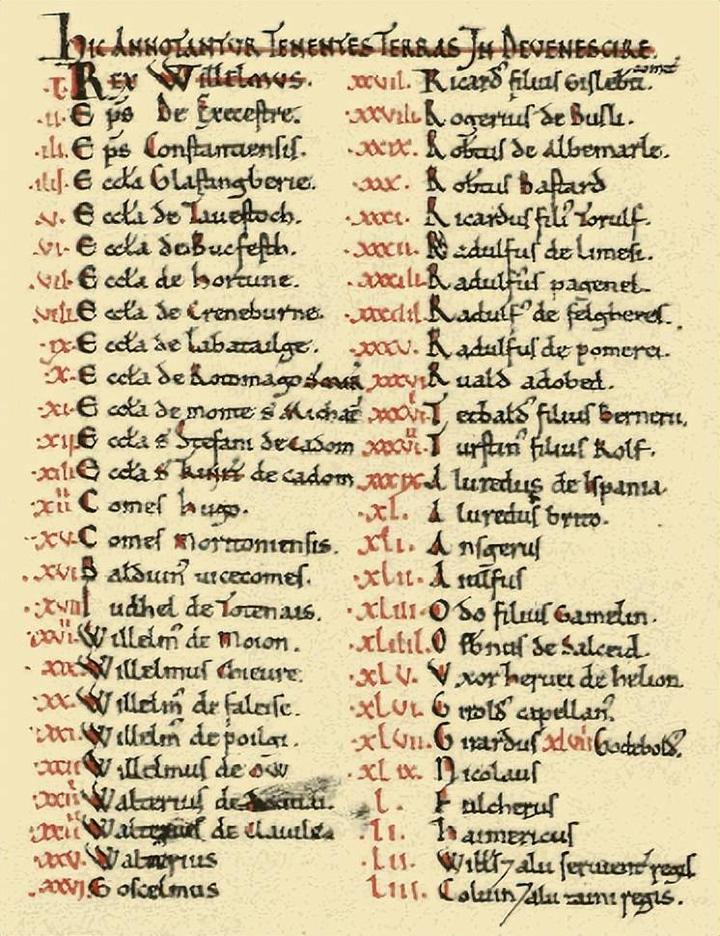 Hic Annotantur Tenentes Terras In Devenescire.
.I. Rex Willelmus.
.ii. Eps De Execestre.
.iii. Eps Constantiensis.
.iiii. Eccła Glastingberie.
.v. Eccła de Tauestoch.
.vi. Eccła de Bucfesth.
.vii. Eccła de hortune.
.viii. Eccła de Creneburne.
.ix. Eccła de labatailge.
.x. Eccła de Rotomago
.xi. Eccła de monte s Michael
.xii. Eccła s Stefani de Cadom
.xiii. Eccła s de cadom
.xiiii. Comes hugo.
.xv. Comes Moritoniensis.
.xvi. Balduin uicecomes.
.xvii. Iudhel de Totenais.
.xviii. Willelm de Moion.
.xix. Willelmus Chieure.
.xx. Willelm de faleise.
.xxi. Willelm de poilgi.
.xxii. Willelmus de ow
.xxiii. Walterius de
.xxiiii. Walterius de Clauile.
.xxv. Walterius
.xxvi. Goscelmus
.xxvii. Ricard filius Gisleb̄ti. comit
.xxviii. Rogerius de Busli.
.xxix. Robtus de Albemarle.
.xxx. Robtus Bastard
.xxxi. Ricardus fili Torulf.
.xxxii. Radulfus de limesi.
.xxxiii. Radulfus pagenel.
.xxxiiii. Radulf de felgheres.
.xxxv. Radulfus de pomerei.
.xxxvi. Ruald adobed.
.xxxvii. Tetbald filius Bernerii.
.xxxviii. Turstin filius Rolf.
.xxxix. Aluredus de Ispania.
.xl. Aluredus brito.
.xli. Ansgerus
.xlii. Aiulfus
.xliii. Odo filius Gamelin.
.xliiii. Osbnus de Salceid.
.xlv. Vxor heruei de helion
.xlvi. Girold capellan.
.xlvii. Girardus .xlviii. Godebold.
.xlix. Nicolaus
.l. Fulcherus
.li. haimericus
.lii. Wills ⁊ alii seruient regis
.liii. Coluin ⁊ alii taini regis.